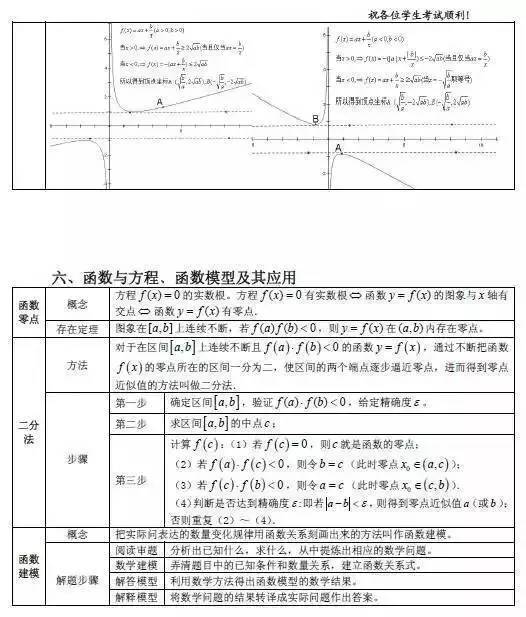 祝各位学生考试顺利!
f(x)=ax+b/x(a>0,b>0)
A
f(x)=ax+b/x(a<0,b<0)
B
A
六、函数与方程、函数模型及其应用
函数零点
概念
方程f(x)=0的实数根。方程f(x)=0有实数根⇔函数y=f(x)的图象与x轴有
交点⇔函数y=f(x)有零点.
存在定理
图象在[a,b]上连续不断,若f(a)f(b)<0,则y=f(x)在(a,b)内存在零点。
二分法
方法
对于在区间[a,b]上连续不断且f(a)·f(b)<0的函数y=f(x),通过不断把函数
f(x)的零点所在的区间一分为二,使区间的两个端点逐步逼近零点,进而得到零点
近似值的方法叫做二分法.
步骤
第一步
确定区间[a,b],验证f(a)·f(b)<0,给定精确度ε。
第二步
求区间[a,b]的中点c;
第三步
计算f(c):(1)若f(c)=0,则c就是函数的零点;
(2)若f(a)·f(c)<0,则令b=c(此时零点x₀∈(a,c));
(3)若f(c)·f(b)<0,则令a=c(此时零点x₀∈(c,b)).
(4)判断是否达到精确度ε:即若|a-b|<ε,则得到零点近似值a(或b);
否则重复(2)~(4).
函数建模
概念
把实际问表达的数量变化规律用函数关系刻画出来的方法叫作函数建模。
解题步骤
阅读审题
分析出已知什么,求什么,从中提炼出相应的数学问题。
数学建模
弄清题目中的已知条件和数量关系,建立函数关系式。
解答模型
利用数学方法得出函数模型的数学结果。
解释模型
将数学问题的结果转译成实际问题作出答案。